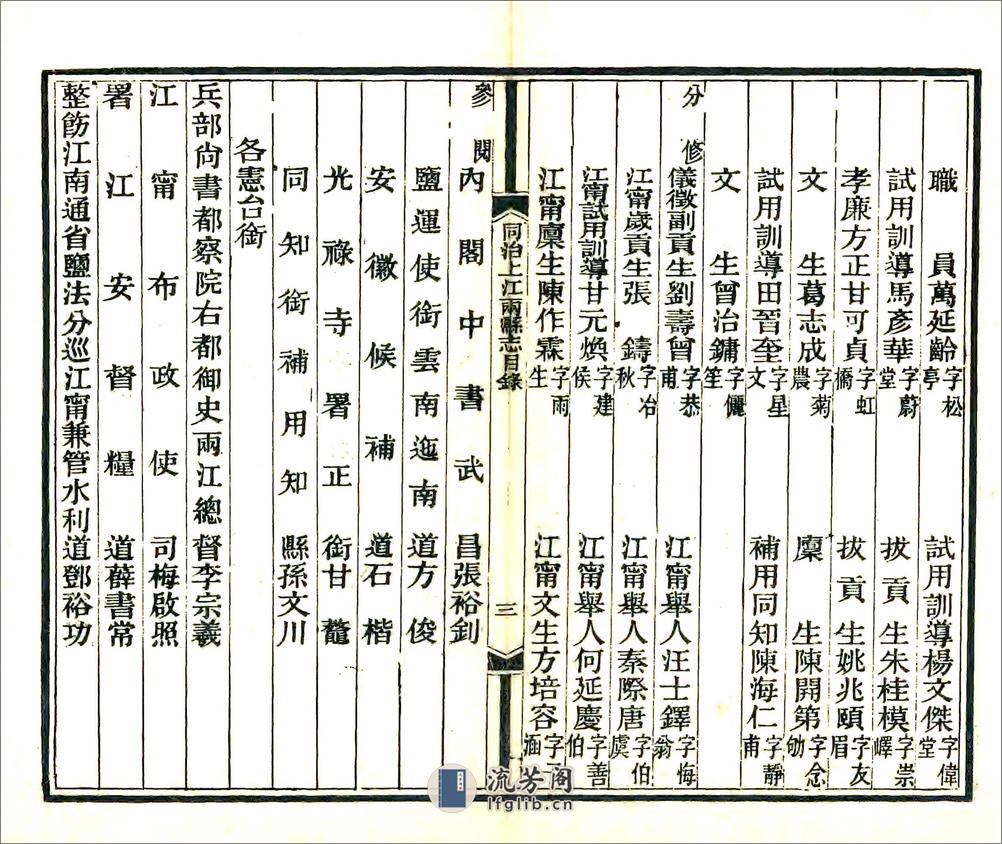 職員萬延齡字松亭　試用訓導楊文傑字偉堂
試用訓導馬彥華字蔚堂　拔貢生朱桂模字崇嶧
孝廉方正甘可貞字虹僑　拔貢生姚兆頤字友眉
文生葛志成字菊農　廩生陳開第字念劬
試用訓導田晉奎字星文　補用同知陳海仁字靜甫
文生曾治鏞字儷笙
分修　儀徵副貢生劉壽曾字恭甫　江甯舉人汪士鐸字梅翁
江甯歲貢生張鑄字冶秋　江甯舉人秦際唐字伯虞
江甯試用訓導甘元煥字建侯　江甯舉人何延慶字善伯
江甯廩生陳作霖字雨生　江甯文生方培容字涵
同治上江兩縣志目錄　三
參閱　內閣中書武昌張裕釗
鹽運使銜雲南迤南道方俊
安徽候補道石楷
光祿寺署正銜甘鼇
同知銜補用知縣孫文川
各憲台銜
兵部尚書都察院右都御史兩江總督李宗羲
江甯布政使司梅啟照
署江安督糧道薛書常
整飭江南通省鹽法分巡江甯兼管水利道鄧裕功
流芳阁
lfglib.cn